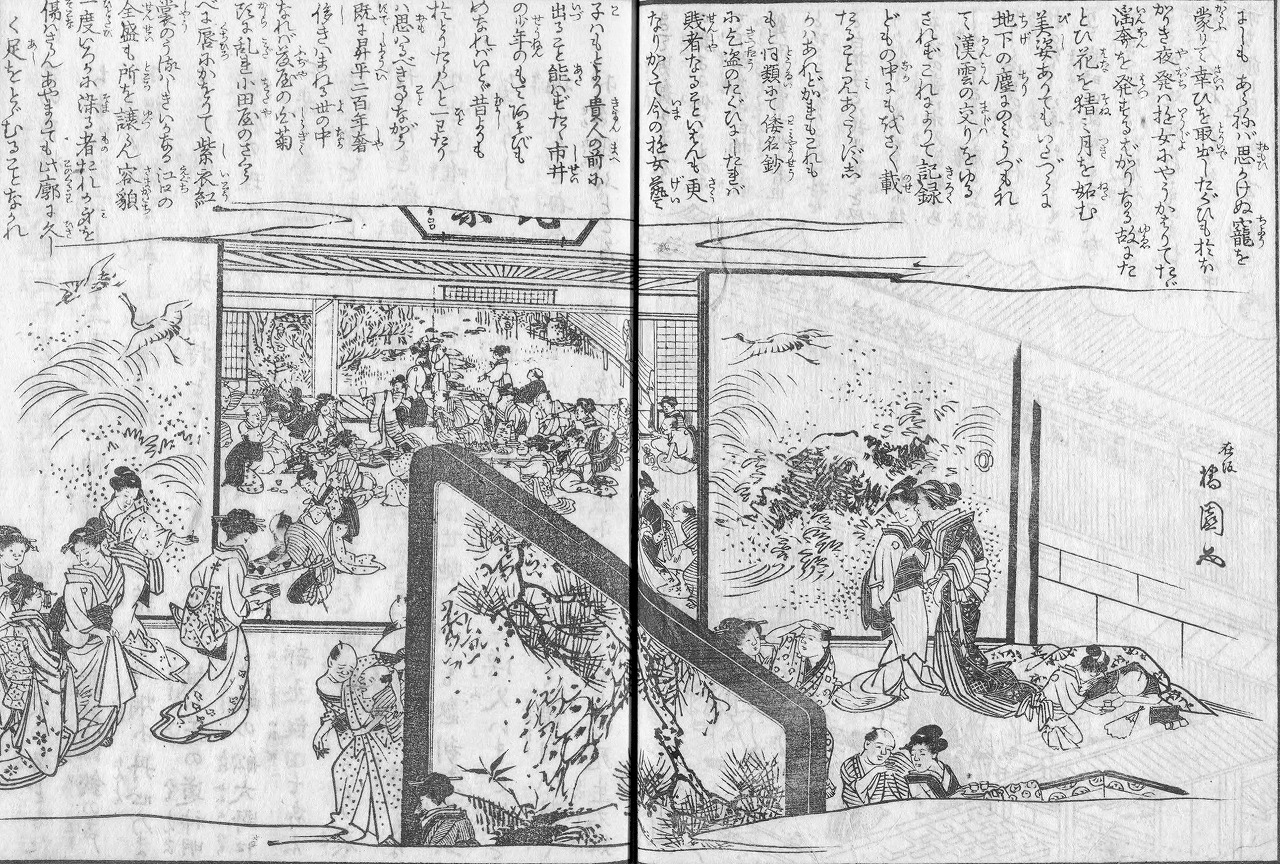 しも あらねば思ひかけぬ寵を
蒙りて幸ひを取出したぐひも於ほ
かりき夜発ハ遊女にやうかはりてたゞ
淫奔を発せるばかりなる故にた
とひ花を猜ミ月を妬む
美姿ありてもいたづらに
地下の塵にのミうづもれ
て漢雲の交りをゆる
されずこれによりて記録
どもの中にもをさ〳〵載
たること見あたらず志
かハあれどがきもこれも
もと同類にて倭名鈔
に乞盗のたぐひにしたれバ
賎者たるをいはんも更
なりかくて今の遊女藝
子ハもとより貴人の前に
出ること能ハずたゞ市井
の少年のもてあそびも
のなれバいとゞ昔よりも
於とりたらんと一わたり
ハ思ハるべき事ながら
既に昇平二百年奢
侈きハまれる世の中
なれバ藤屋の白菊
乱れ小田屋のさらし
べに唇にかをりて紫衣紅
裳のうるハしきいかなる江口の
全盛も所を譲らん容貌
一度いろかに染る者たれか身を
傷らざらんあやまつても此廓に久し
く足をとゞむることなかれ
在阪
橘園画